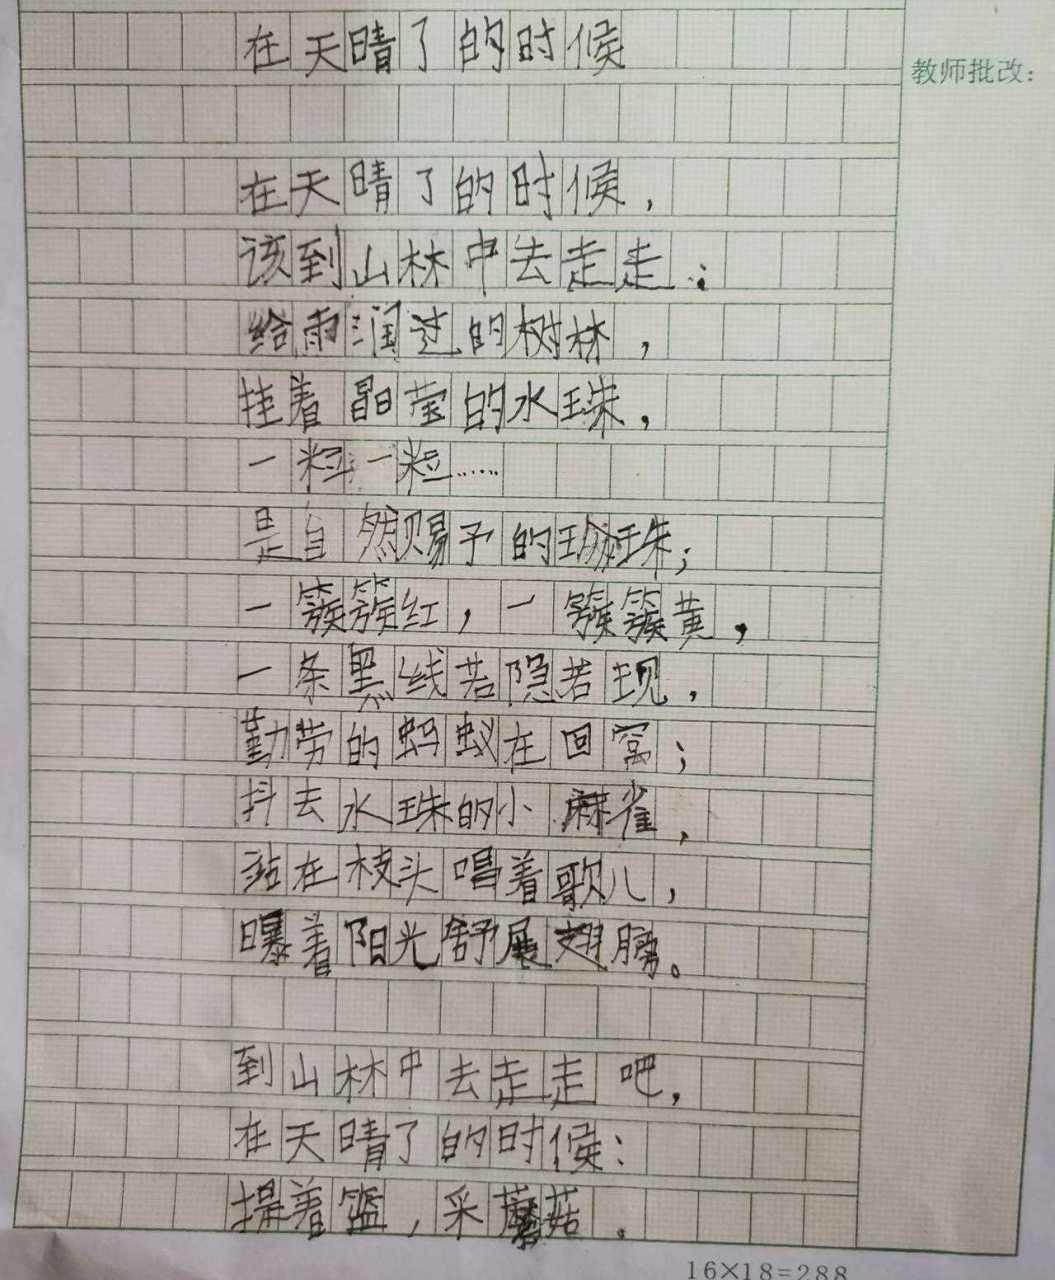 在天晴了的时候
教师批改：
在天晴了的时候，
该到山林中去走走：
给雨润过的树林，
挂着晶莹的水珠，
一粒一粒……
是自然赐予的珍珠；
一簇簇红，一簇簇黄，
一条黑线若隐若现，
勤劳的蚂蚁在回窝；
抖去水珠的小麻雀，
站在枝头唱着歌儿，
曝着阳光舒展翅膀。
到山林中去走走吧，
在天晴了的时候：
提着篮，采蘑菇。
16×18=288